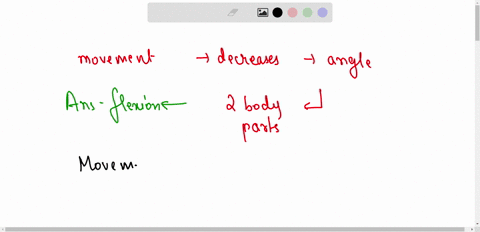 movement → decreases → angle
Ans - flexion ← 2 body ↲
parts
Movem.